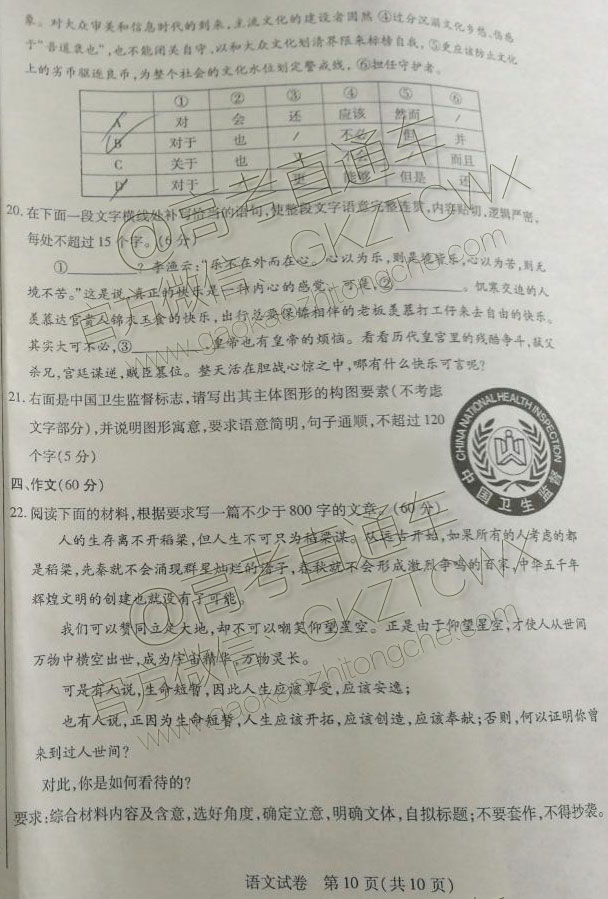 象。对大众审美和信息时代的到来,主流文化的建设者固然 ④过分沉溺文化乡愁、伤感
于“吾道衰也”,也不能闭关自守、以和大众文化划清界限来标榜自我,⑤更应该防止文化
上的劣币驱逐良币,为整个社会的文化水位划定警戒线,⑥担任守护者。
① ② ③ ④ ⑤ ⑥
A 对 会 还 应该 然而 /
B 对于 也 / 不必 但 并
C 关于 也 又 不会 而且
D 对于 / 更 能够 但是 还
20.在下面一段文字横线处补写恰当的语句,使整段文字语意完整连贯,内容贴切,逻辑严密,
每处不超过15个字。(6分)
①____________?李渔云:“乐不在外而在心。心以为乐,则是境皆乐,心以为苦,则无
境不苦。”这是说,真正的快乐是一种内心的感觉。可是,②____________。饥寒交迫的人
羡慕达官贵人锦衣玉食的快乐,出行总要保镖相伴的老板羡慕打工仔来去自由的快乐。
其实大可不必,③____________皇帝也有皇帝的烦恼。看看历代皇宫里的残酷争斗,弑父
杀兄,宫廷谋逆,贼臣篡位。整天活在胆战心惊之中,哪有什么快乐可言呢?
21.右面是中国卫生监督标志,请写出其主体图形的构图要素(不考虑
文字部分),并说明图形寓意,要求语意简明,句子通顺,不超过120
个字(5分)
CHINA NATIONAL HEALTH INSPECTION
中国卫生监督
四、作文(60分)
22.阅读下面的材料,根据要求写一篇不少于800字的文章。(60分)
人的生存离不开稻粱,但人生不可只为稻粱谋。从远古开始,如果所有的人考虑的都
是稻粱,先秦就不会涌现群星灿烂的诸子,春秋就不会形成激烈争鸣的百家,中华五千年
辉煌文明的创建也就没有了可能。
我们可以赞同立足大地,却不可以嘲笑仰望星空。正是由于仰望星空,才使人从世间
万物中横空出世,成为宇宙精华、万物灵长。
可是有人说,生命短暂,因此人生应该享受,应该安逸;
也有人说,正因为生命短暂,人生应该开拓,应该创造,应该奉献;否则,何以证明你曾
来到过人世间?
对此,你是如何看待的?
要求:综合材料内容及含意,选好角度,确定立意,明确文体,自拟标题;不要套作,不得抄袭。
语文试卷 第10页(共10页)
@高考直通车
官方微信:GKZTCWX
www.gaokaozhitongche.com